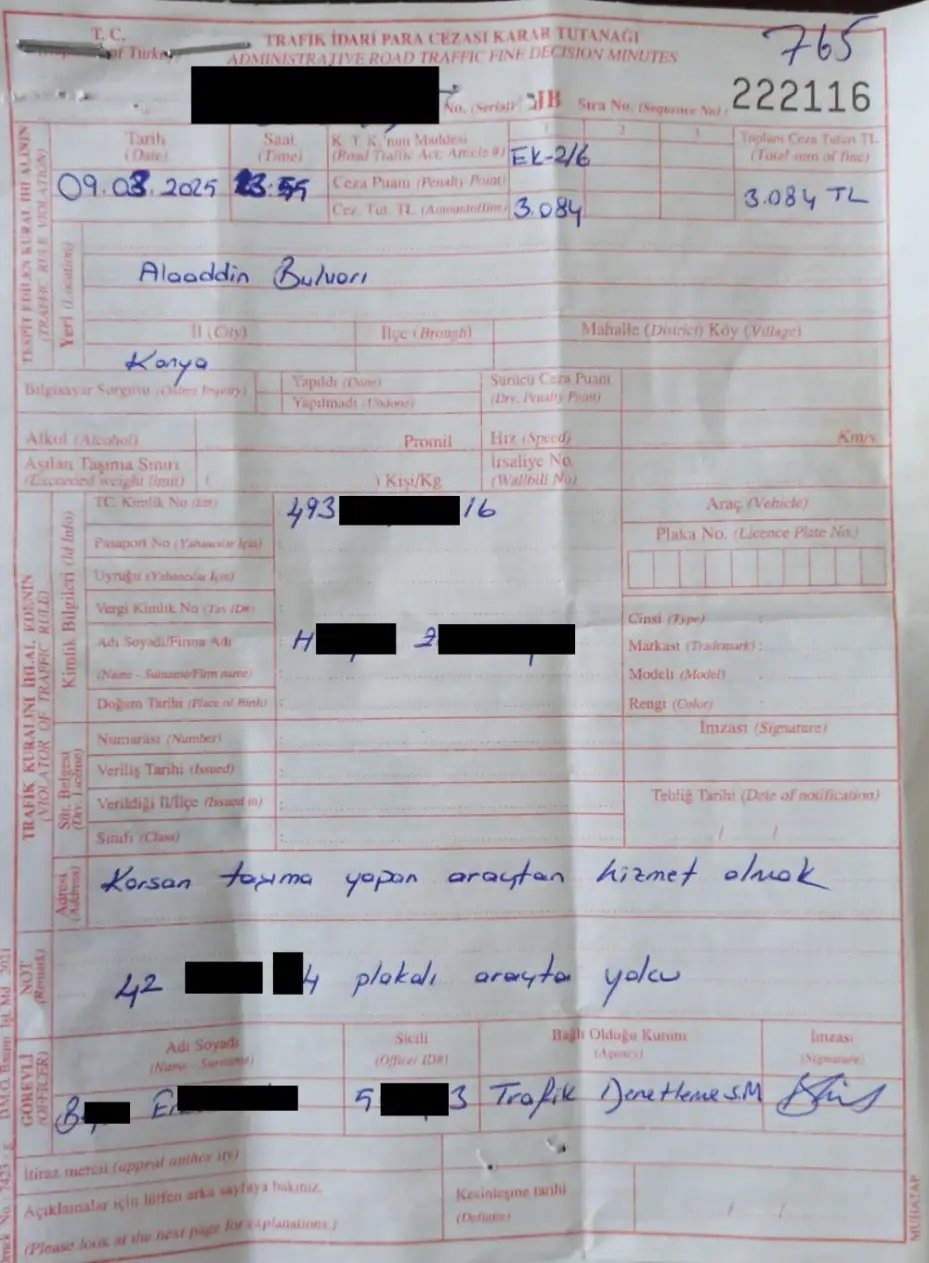 T. C.
of Turkey
TRAFİK İDARİ PARA CEZASI KARAR TUTANAĞI
ADMINISTRATIVE ROAD TRAFFIC FINE DECISION MINUTES
765
No. (Serial) JB Sıra No. (Sequence No) 222116
TESPİT EDİLEN KURAL İHLALİNİN
(TRAFFIC RULE VIOLATION)
Tarih
(Date)
Saat
(Time)
K. T. K.'nun Maddesi
(Road Traffic Act. Article #)
1 2 3
EK-2/6
Toplam Ceza Tutarı TL
(Total sum of fine)
09.03.2025
Ceza Puanı (Penalty Point)
Cez. Tut. TL (Amountoffine) 3.084
3.084 TL
Yeri (Location)
Alaaddin Bulvarı
İl (City) İlçe (Brough) Mahalle (District) Köy (Village)
Konya
Bilgisayar Sorgusu (Online Inquiry)
Yapıldı (Done)
Yapılmadı (Undone)
Sürücü Ceza Puanı
(Drv. Penalty Point)
Alkol (Alcohol) Promil Hız (Speed) Km/s
Aşılan Taşıma Sınırı
(Exceeded weight limit) ( ) Kişi/Kg
İrsaliye No.
(Wallbill No)
TRAFİK KURALINI İHLAL EDENİN
(VIOLATOR OF TRAFFIC RULE)
Kimlik Bilgileri (Id Info)
TC. Kimlik No 493 16
Araç (Vehicle)
Pasaport No (Yabancılar İçin) :
Plaka No. (Licence Plate No.)
Uyruğu (Yabancılar İçin) :
Vergi Kimlik No (Tax ID#) :
Cinsi (Type) :
Adı Soyadı/Firma Adı H
Markası (Trademark) :
(Name - Surname/Firm name)
Modeli (Model)
Doğum Tarihi (Place of Birth) :
Rengi (Color) :
Sür. Belgesi
(Drv. License)
Numarası (Number) :
İmzası (Signature)
Veriliş Tarihi (Issued) :
Verildiği İl/İlçe (Issued in) :
Tebliğ Tarihi (Date of notification)
Sınıfı (Class) :
/ /
Adresi
(Address)
Korsan taşıma yapan araçtan hizmet almak
NOT
(Remark)
42 4 plakalı araçta yolcu
GÖREVLİ
(OFFICER)
Adı Soyadı
(Name - Surname)
Sicili
(Officer ID#)
Bağlı Olduğu Kurum
(Agency)
İmzası
(Signature)
B E 5 3 Trafik Denetleme Ş.M
İtiraz mercii (appeal author ity)
Açıklamalar için lütfen arka sayfaya bakınız.
(Please look at the next page for explanations.)
Kesinleşme tarihi
(Definite)
/ /
MUHATAP
No. : 7423 - g D.M.O. Basım İşl. Md. 2021